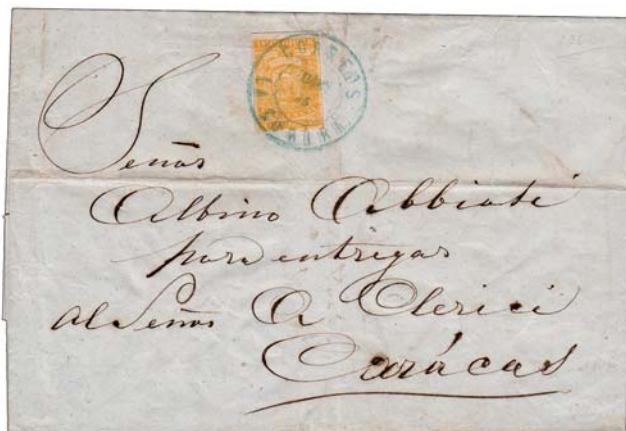 CORREOS
LA GUAIRA
Señor
Albino Abbiati
para entregar
al Señor A Clerici
Carácas